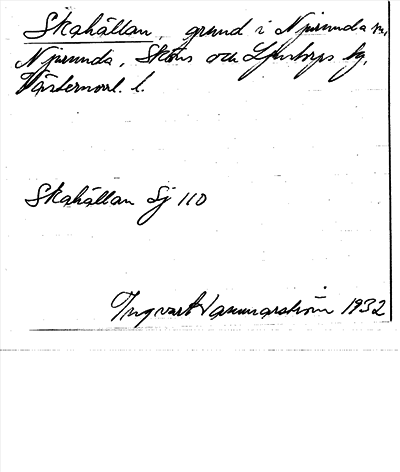 Skahällan, grund i Njurunda sn,
Njurunda, Sköns och Ljustorps tg,
Västernorrl. l.
Skahällan Sj 110
Ingvart Vannarström 1932